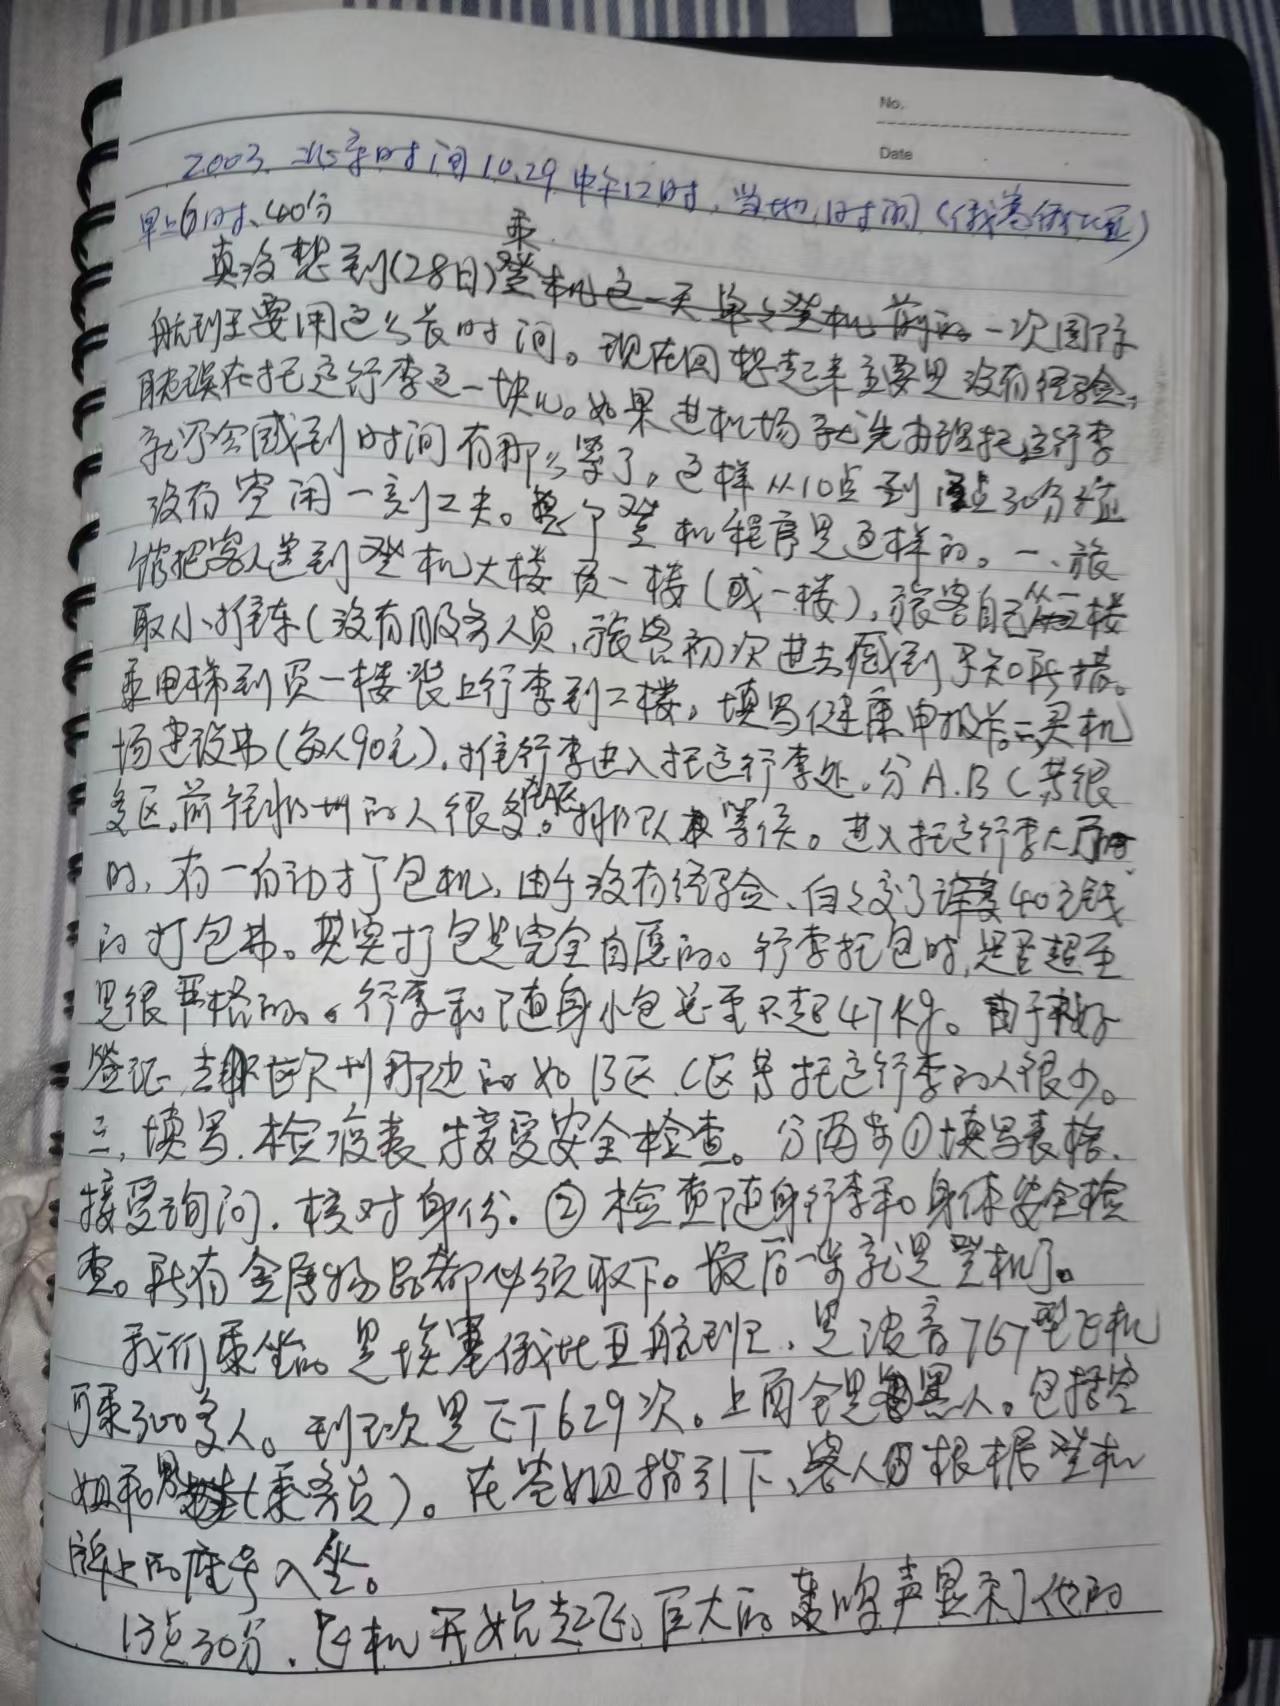 No.
Date
2003. 北京时间10.29中午12时,当地时间(俄塞俄比亚)
早上6时.40分
真没想到(28日)乘一次国际
航班要用这么长时间。现在回想起来主要是没有经验,
耽误在托运行李这一块儿。如果进机场就先办理托运行李
就不会感到时间有那么紧了。这样从10点到 点30分
没有空闲一刻工夫。整个登机程序是这样的。一、旅
馆把客人送到登机大楼负一楼(或一楼),旅客自己从二楼
取小推车(没有服务人员,旅客初次进去感到不知所措。
乘电梯到负一楼装上行李到二楼,填写健康申报卡。二、买机
场建设费(每人90元),推行李进入托运行李处,分A.B.C共很
多区。前往非州的人很多。在A区排队等侯。进入托运行李大厅
时,有一自动打包机,由于没有经验、白白交了 40元钱
的打包费。其实打包是完全自愿的。行李托包时,是否超重
是很严格的。行李和随身小包总重不超47Kg。由于
签证 去 欧州那边的如B区C区等托运行李的人很少。
三,填写.检疫表,接受安全检查。分两步①填写表格.
接受询问.核对身份.②检查随身行李和身体安全检
查。所有金属物品都必须取下。最后一步就是登机了。
我们乘坐的是埃塞俄比亚航班,是波音767型飞机
可乘300多人。班次是ET629次。上面全是黑人。包括空
姐和男 (乘务员)。在空姐指引下,客人 根据登机
牌上的座号入坐。
13点30分.飞机开始起飞,巨大的轰鸣声显示了他的